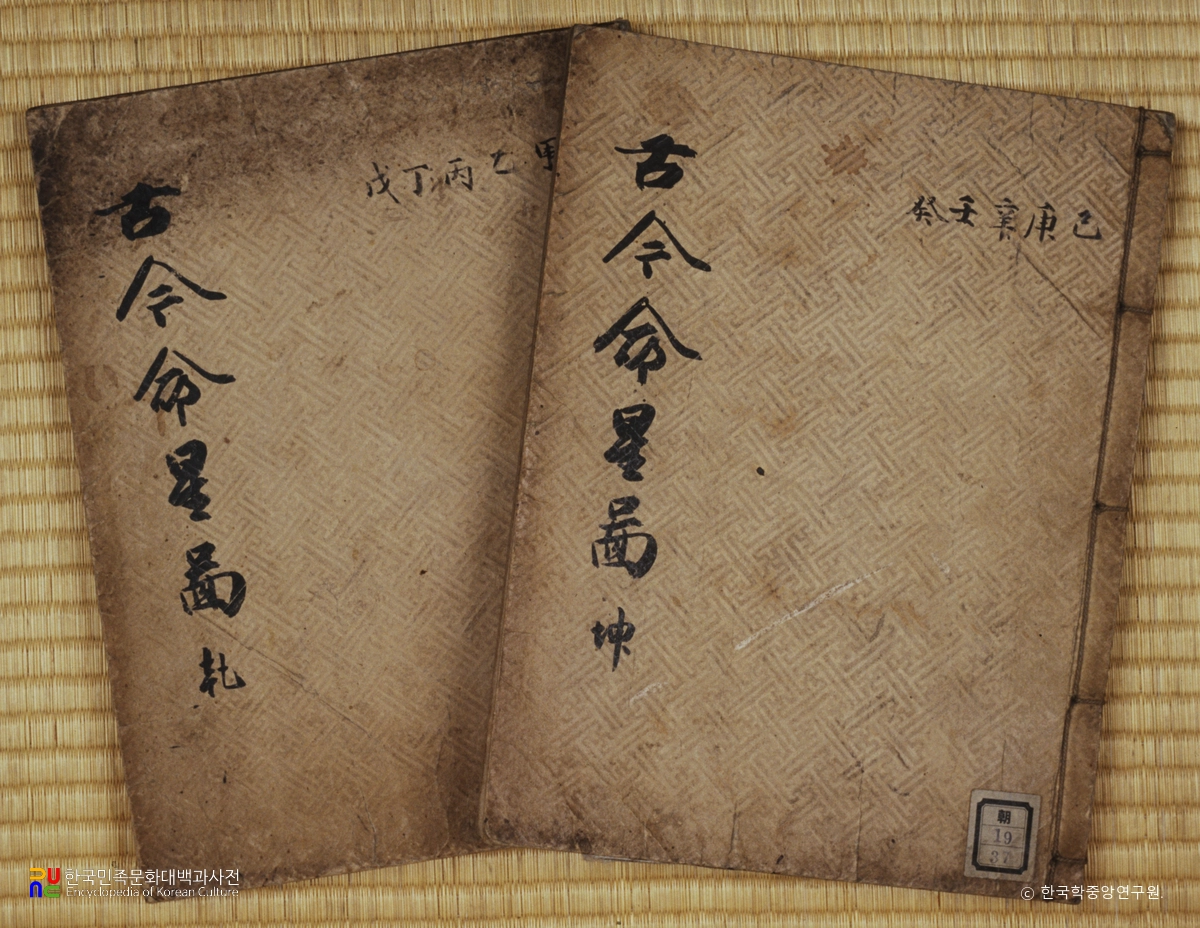 古今命星圖 乾
甲乙丙丁戊
古今命星圖 坤
己庚辛壬癸
朝
19
37
한국민족문화대백과사전
Encyclopedia of Korean Culture
ⓒ 한국학중앙연구원.